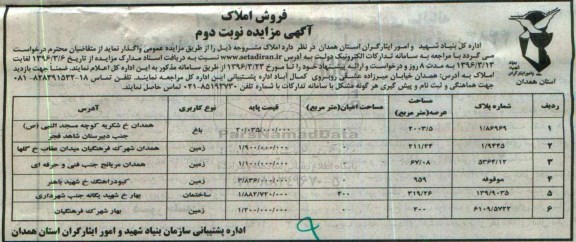 فروش املاک
آگهی مزایده نوبت دوم
اداره کل بنیاد شهید و امور ایثارگران استان همدان در نظر دارد املاک مشروحه ذیل را از طریق مزایده عمومی واگذار نماید از متقاضیان محترم درخواست
می گردد با مراجعه به سامانه تدارکات الکترونیک دولت به آدرس www.setadiran.ir نسبت به دریافت اسناد مدارک مزایده از تاریخ ۱۳۹۶/۳/۶ لغایت
۱۳۹۶/۳/۱۳ به مدت ۸ روز و درخواست و ارائه پیشنهاد خود را تا مورخ ۱۳۹۶/۳/۲۳ از طریق سامانه مذکور به این اداره کل اعلام نمایند. ضمناً جهت بازدید
املاک به آدرس: همدان خیابان میرزاده عشقی روبروی کمال آباد اداره پشتیبانی این اداره کل مراجعه نمایند. تلفن تماس ۱۸-۳۸۲۴۹۱۵۳۲-۰۸۱
جهت هماهنگی و ثبت نام و پیش گیری هر گونه مشکل با سامانه تدارکات با شماره تلفن ۸۵۱۹۳۷۳۰-۰۲۱ تماس حاصل نمایند.
بنیاد شهید و امور ایثارگران
استان همدان
ردیف شماره پلاک مساحت عرصه(متر مربع) مساحت اعیان(متر مربع) قیمت پایه نوع کاربری آدرس
۱ ۱/۸۶۹۶۹ ۲۰۰۳/۵ ۰ ۲۰/۰۳۵/۰۰۰/۰۰۰ باغ همدان خ شکریه کوچه مسجد النبی (ص) جنب دبیرستان شاهد فجر
۲ ۱/۹۴۴۵ ۲۱۱/۲۴ ۰ ۱/۹۰۰/۸۰۰/۰۰۰ زمین همدان شهرک فرهنگیان میدان عقاب خ گلها
۳ ۵۳۶۴/۱۲ ۶۷/۰۸ ۰ ۱/۱۰۰/۰۰۰/۰۰۰ زمین همدان مریانج جنب فنی و حرفه ای
۴ موقوفه ۹۵۹ ۰ ۲/۸۳۶/۰۰۰/۰۰۰ زمین کبودراهنگ خ شهید باهنر
۵ ۱۳۹/۹۰۳۵ ۳۱۹/۲۶ ۴۰۰ ۱/۸۸۴/۷۲۰/۰۰۰ ساختمان بهار خ شهید یگانه جنب شهرداری
۶ ۶۱۰۹/۵۷۲۲ ۴۰۰ ۰ ۱/۲۰۰/۰۰۰/۰۰۰ زمین بهار شهرک فرهنگیان
اداره پشتیبانی سازمان بنیاد شهید و امور ایثارگران استان همدان
۹